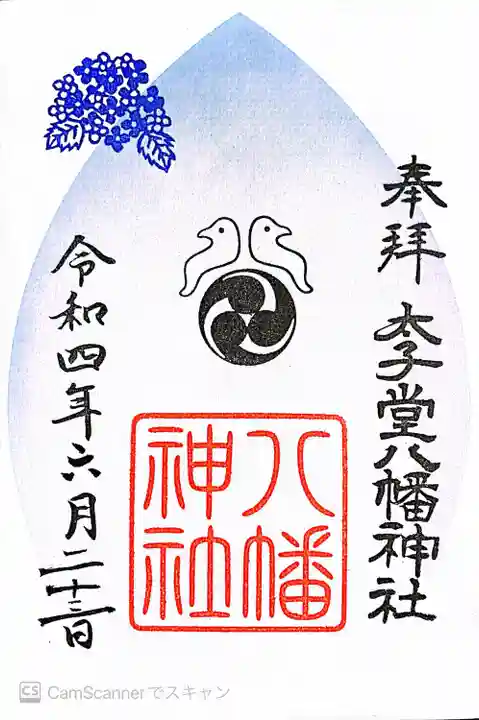 奉拝
太子堂八幡神社
八幡
神社
令和四年六月二十三日
CS CamScannerでスキャン